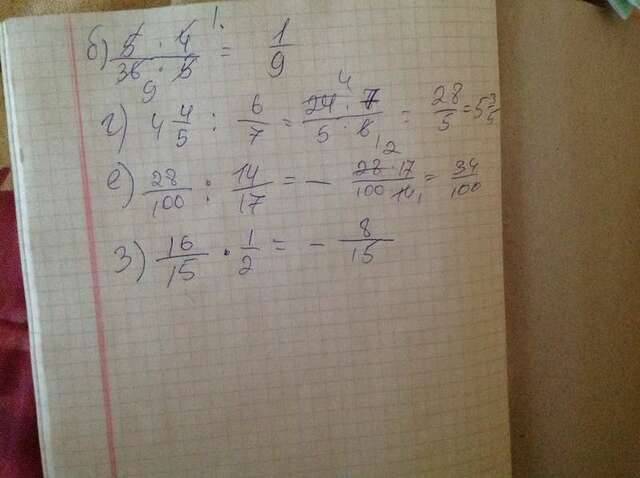 б) 5 · 4 / 36 · 5 = 1/9
г) 4 4/5 : 6/7 = 24 · 7 / 5 · 6 = 28/5 = 5 3/5
е) 28/100 : 14/17 = - 28 · 17 / 100 · 14 = 34/100
з) 16/15 · 1/2 = - 8/15